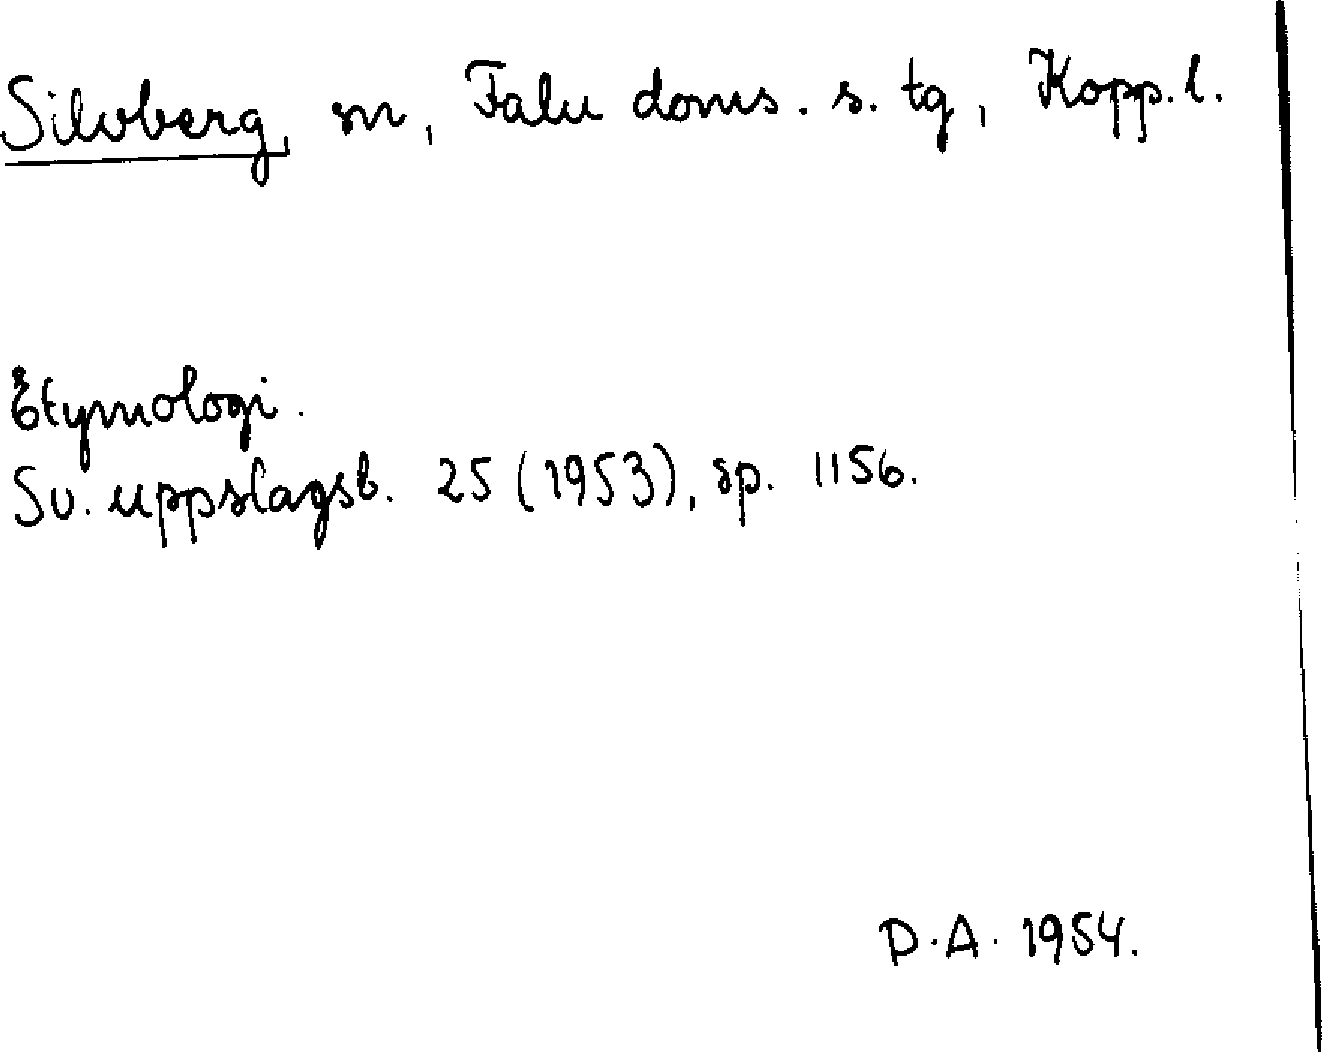 Silvberg, sn, Falu doms. s. tg, Kopp. l.
Etymologi.
Sv. uppslagsb. 25 (1953), sp. 1156.
D.A. 1954.